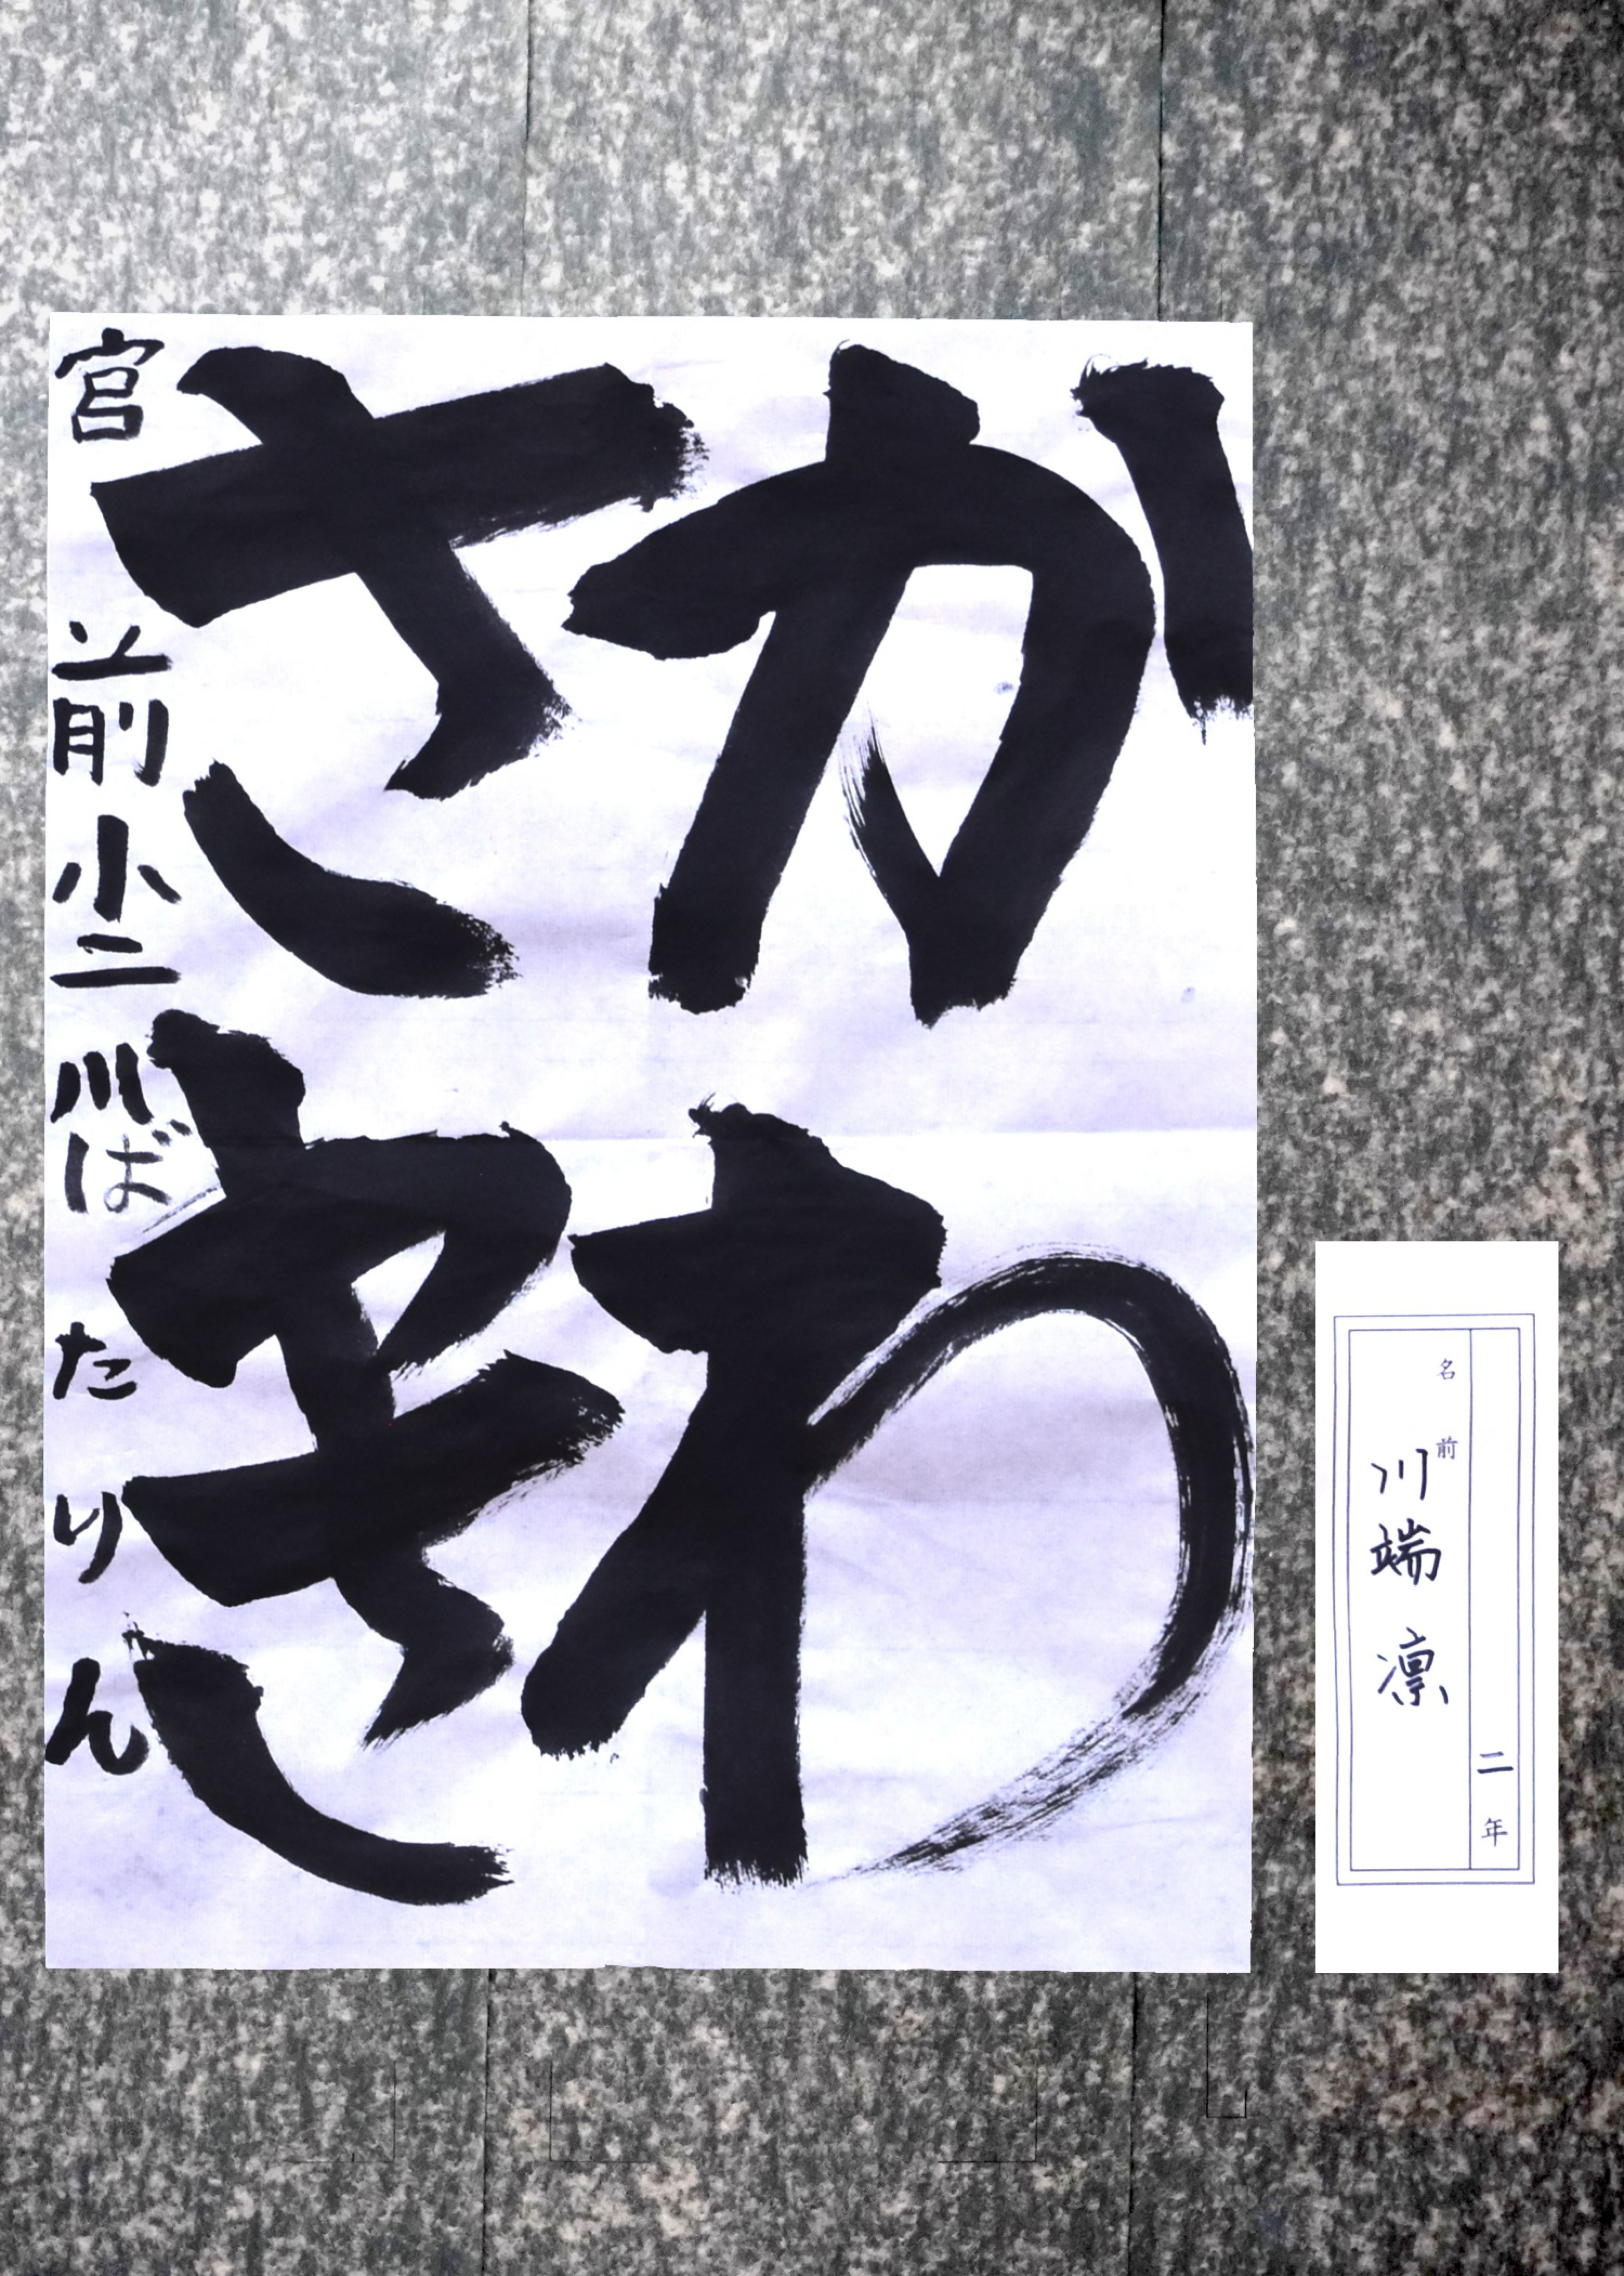 かわ
さき
宮前小二川ばたりん
二年
名前
川端凛